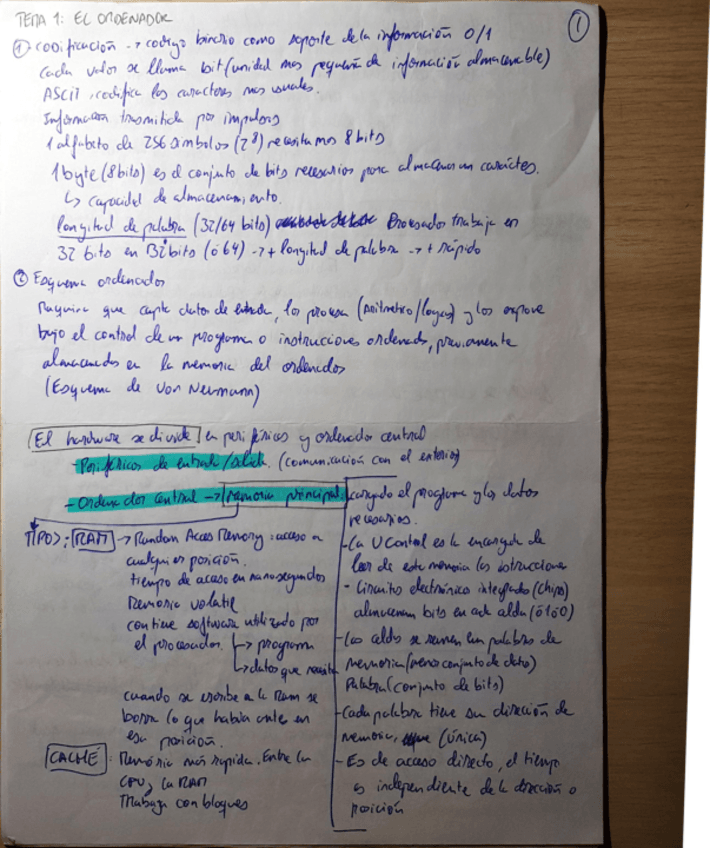 TEMA 1: EL ORDENADOR
1
① codificación → código binario como soporte de la información 0/1
Cada valor se llama bit (unidad mas pequeña de información almacenable)
ASCII, codifica los caracteres mas usuales.
Información trasmitida por impulsos
1 alfabeto de 256 simbolos (2⁸) necesitamos 8 bits
1 byte (8 bits) es el conjunto de bits necesarios para almacenar un carácter.
↳ capacidad de almacenamiento.
Longitud de palabra (32/64 bits) Procesador trabaja en
32 bits en 32 bits (ó 64) → + longitud de palabra → + rápido
② Esquema ordenador
Maquina que capta datos de entrada, los procesa (aritmetico/logico) y los
bajo el control de un programa o instrucciones ordenado, previamente
almacenados en la memoria del ordenador
(Esquema de Von Neumann)
El hardware se divide en periféricos y ordenador central
- Periféricos de entrada/salida. (comunicación con el exterior)
- Ordenador central → memoria principal
TIPOS: RAM → Random Acces Memory: acceso a
cualquier posición.
tiempo de acceso en nanosegundos
Memoria volatil
contiene software utilizado por
el procesador. ↳ programa
↳ datos que necesita
cuando se escribe a la Ram se
borra lo que había antes en
esa posición.
CACHÉ: Memória más rapida. Entre la
CPU y la RAM
Trabaja con bloques
cargado el programa y los datos
necesarios.
- La U Control es la encargada de
leer de esta memoria las intrucciones
- Circuitos electrónico integrados (chips)
almacenan bits en cada celda (ó 1 ó 0)
- Las celdas se reunen en palabras de
memoria (conjunto de datos)
Palabra (conjunto de bits)
- Cada palabra tiene su dirección de
memoria, (única)
- Es de acceso directo, el tiempo
es independiente de la dirección o
posición